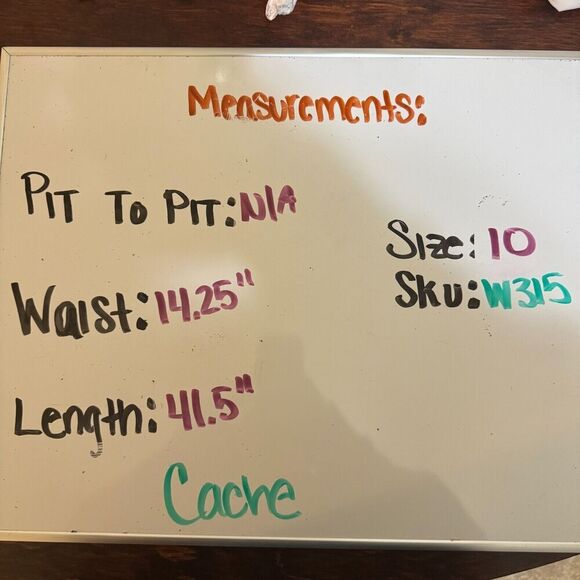 Measurements:
Pit To Pit: N/A
Waist: 14.25"
Length: 41.5"
Size: 10
Sku: W315
Cache